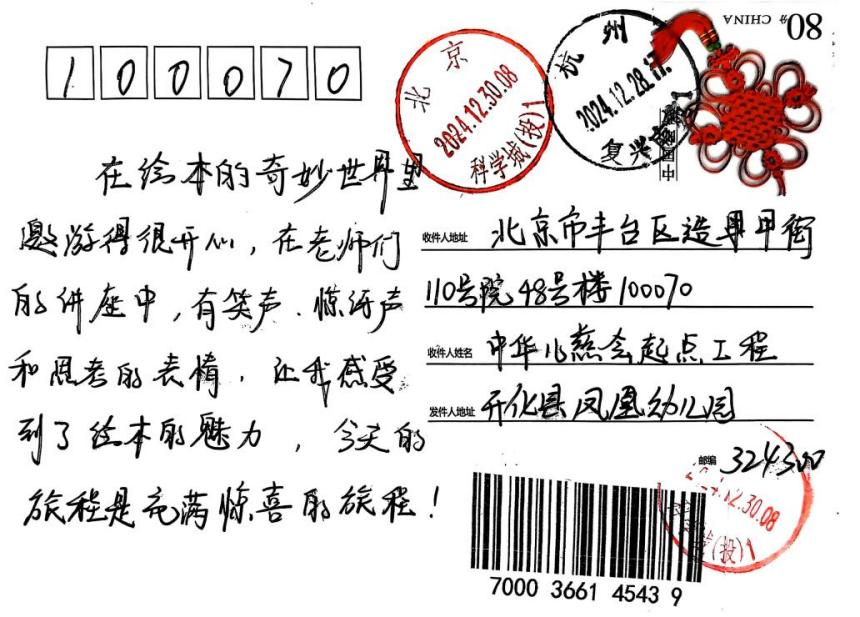 100070
在绘本的奇妙世界里
遨游得很开心，在老师们
的讲座中，有笑声、惊讶声
和思考的表情，让我感受
到了绘本的魅力，今天的
旅程是充满惊喜的旅程！
80分 CHINA
中国邮政
北京
2024.12.30.08
科学城(投)1
杭州
2024.12.28.17
复兴
收件人地址 北京市丰台区造甲街
110号院48号楼100070
收件人姓名 中华儿慈会起点工程
发件人地址 开化县凤凰幼儿园
邮编 324300
12.30.08
(投)1
7000 3661 4543 9